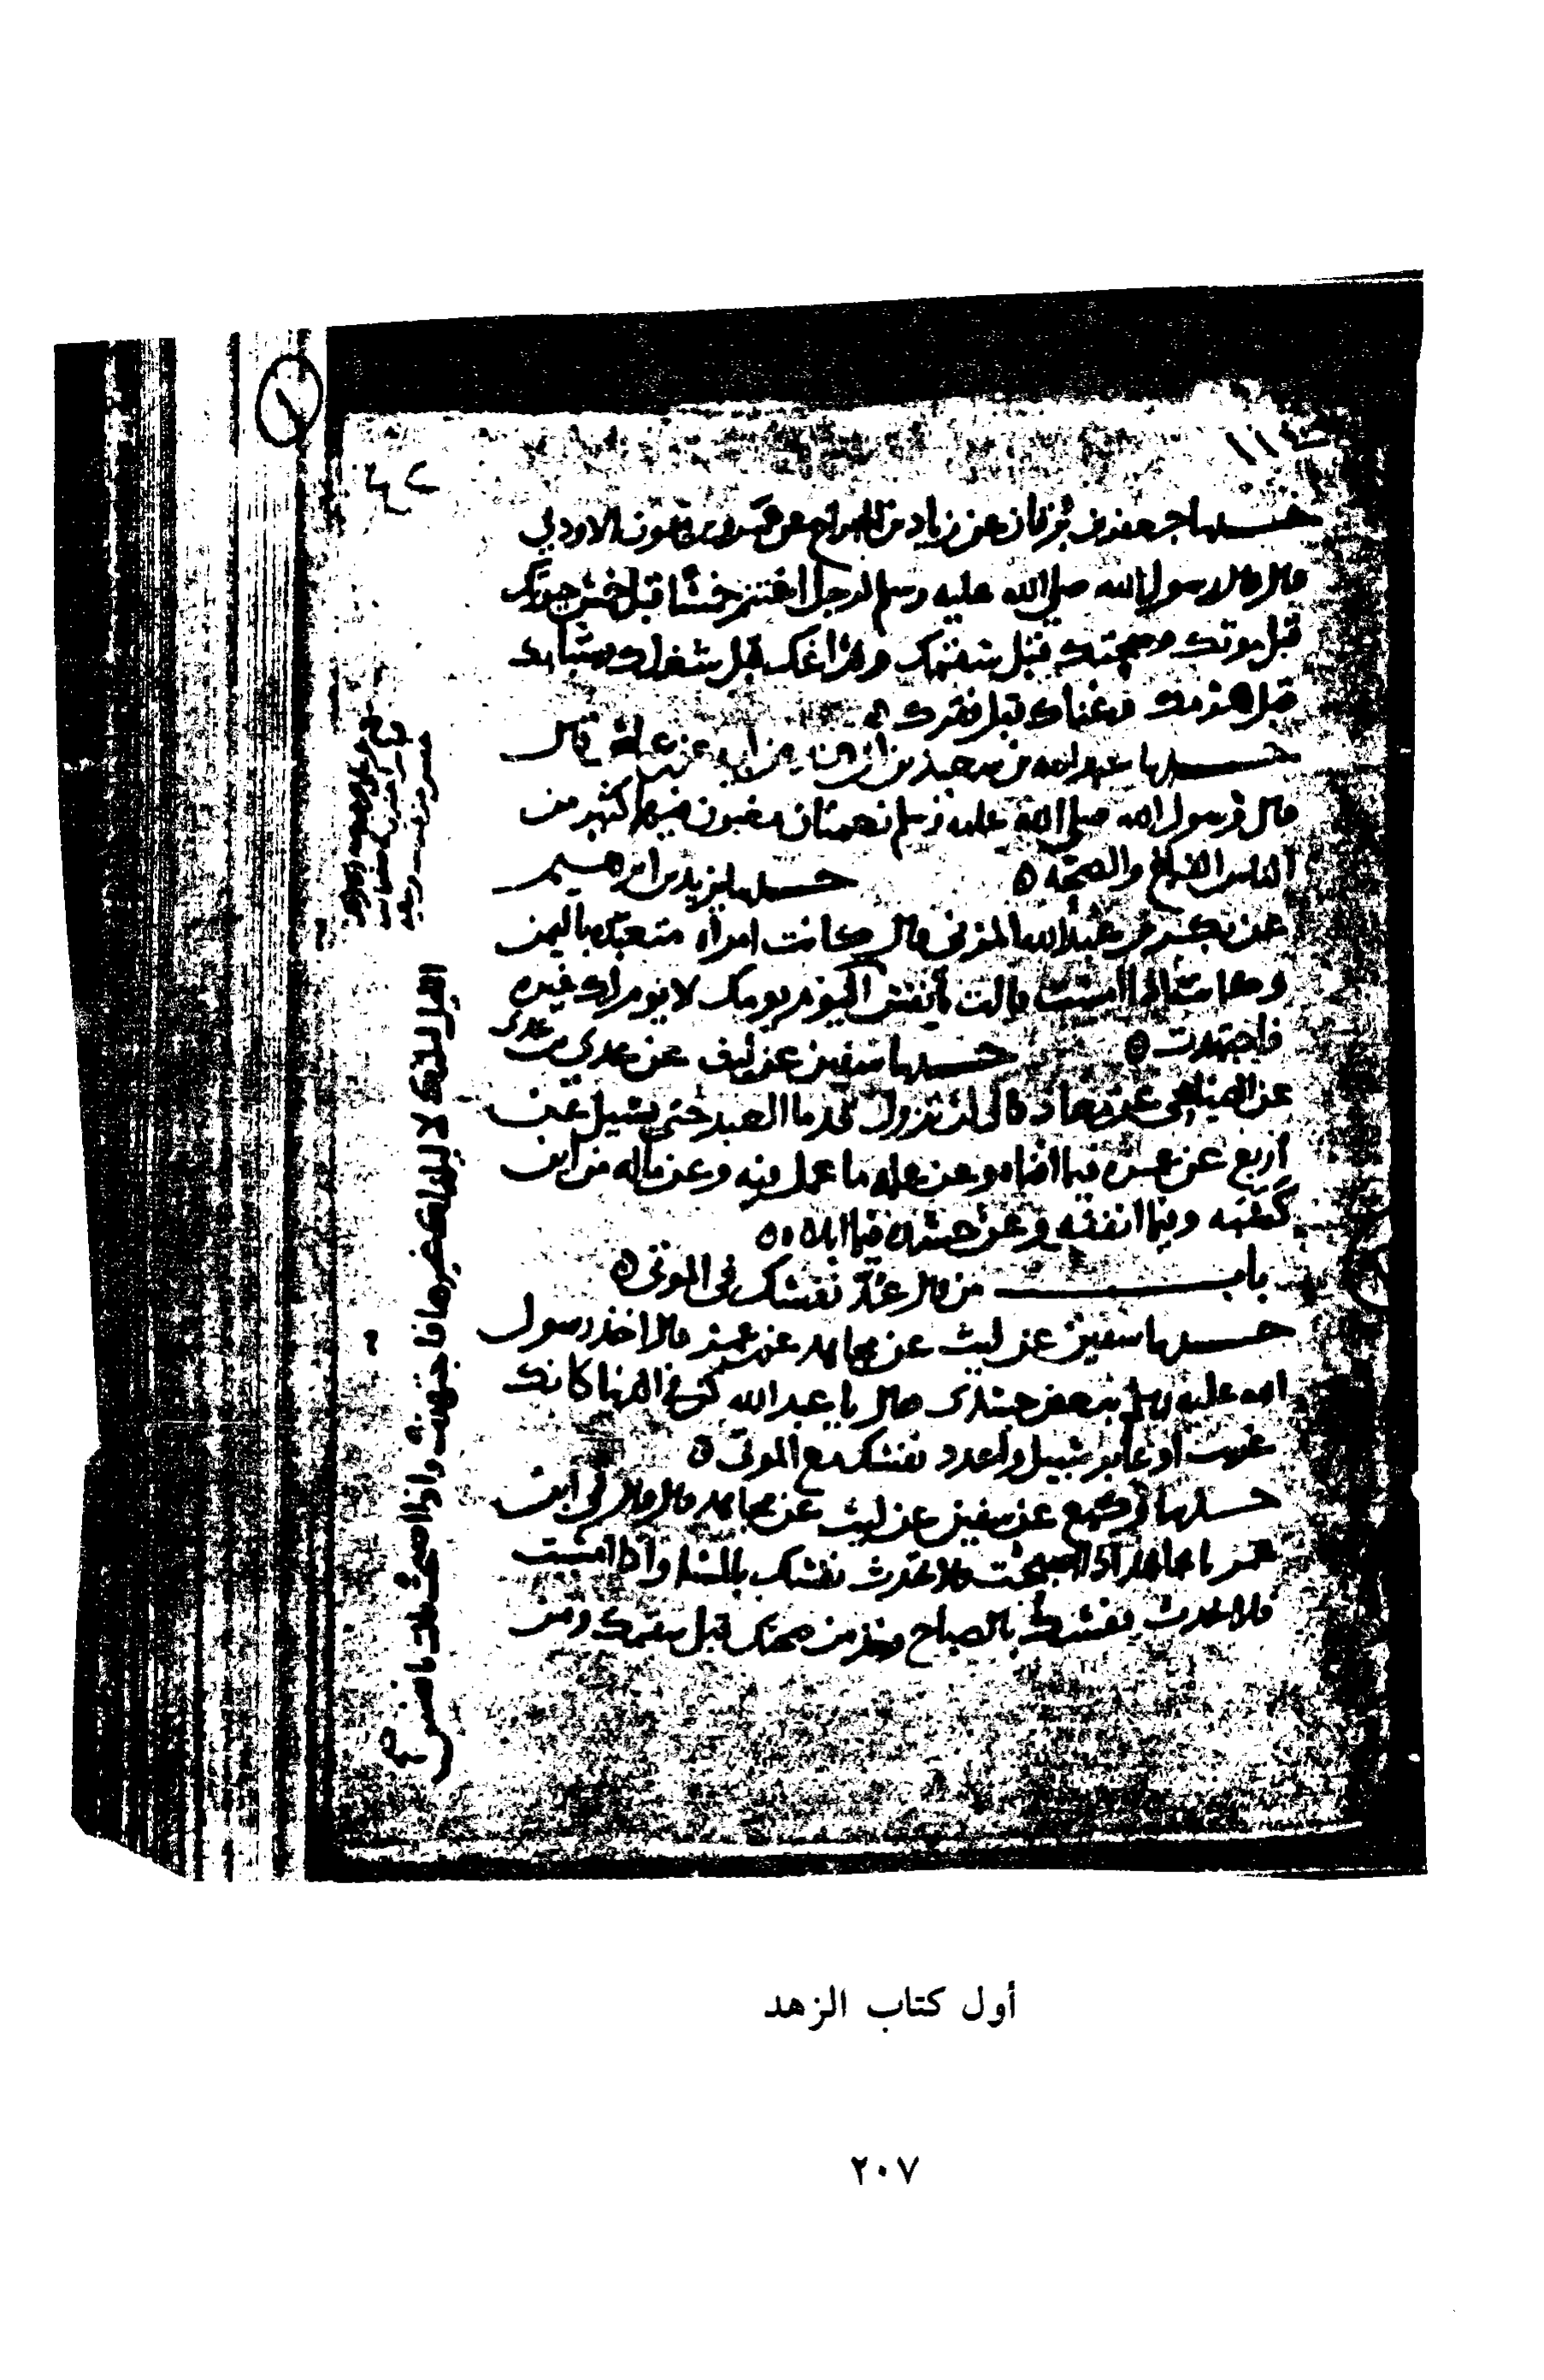 حدثنا جعفر بن برقان عن زياد بن الجراح عن عمرو بن ميمون الاودي
قال قال رسول الله صلى الله عليه وسلم لرجل اغتنم خمسا قبل خمس حيوتك
قبل موتك وصحتك قبل سقمك وفراغك قبل شغلك وشبابك
قبل هرمك وغناك قبل فقرك ه
حدثنا عبد الله بن سعيد بن ابي هند عن ابيه عن قال
قال رسول الله صلى الله عليه وسلم نعمتان مغبون فيهما كثير من
الناس الفراغ والصحة ه حدثنا يزيد بن ابرهيم
عن بكر بن عبد الله المزني قال كانت امرأة متعبدة باليمن
وكانت اذا امست قالت يا نفس اليوم يومك لا يوم لك غيره
فاجتهدت ه حدثنا سفين عن ليث عن عدي بن عدي
عن الصنابحي عن معاذ قال لن تزول قدما العبد حتى يسئل عن
اربع عن عمره فيما افناه وعن عمله ما عمل فيه وعن ماله من اين
كسبه وفيما انفقه وعن جسده فيما ابلاه ه
باب من قال عد نفسك في الموتى ه
حدثنا سفين عن ليث عن مجاهد عن ابن عمر قال اخذ رسول
الله عليه وسلم ببعض جسدي فقال يا عبد الله كن في الدنيا كانك
غريب او عابر سبيل واعدد نفسك مع الموتى ه
حدثنا وكيع عن سفين عن ليث عن مجاهد قال قال لي ابن
عمر يا مجاهد اذا اصبحت فلا تحدث نفسك بالمسا واذا امسيت
فلا تحدث نفسك بالصباح وخذ من صحتك قبل سقمك ومن
أول كتاب الزهد
٢٠٧